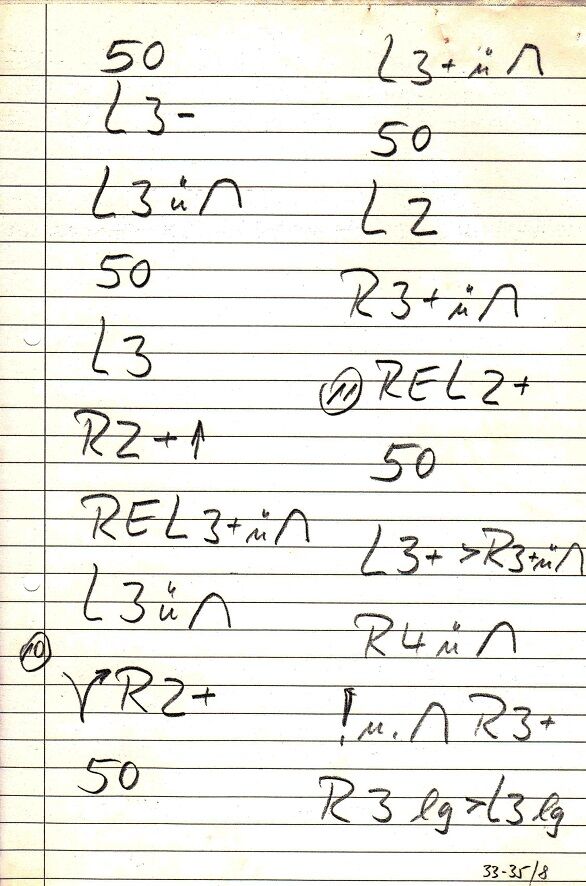 50
L3-
L3ü∩
50
L3
R2+↑
REL3+ü∩
L3ü∩
10
R2+
50
L3+ü∩
50
L2
R3+ü∩
11 REL2+
50
L3+>R3+ü∩
R4ü∩
!ü.∩ R3+
R3lg>L3lg
33-35/8